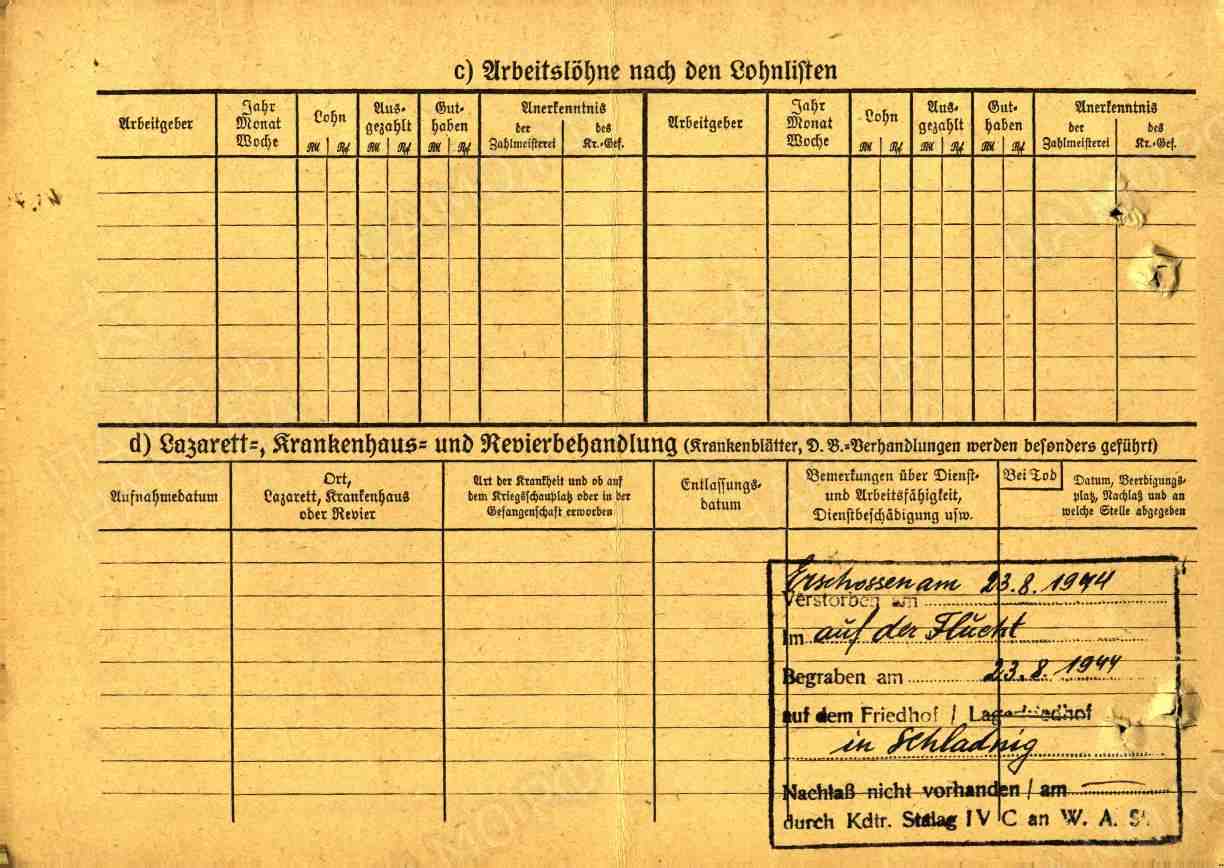 c) Arbeitslöhne nach den Lohnlisten
Arbeitgeber
Jahr
Monat
Woche
Lohn
RM Rpf
Aus-
gezahlt
RM Rpf
Gut-
haben
RM Rpf
Anerkenntnis
der
Zahlmeisterei
des
Kr.-Gef.
Arbeitgeber
Jahr
Monat
Woche
Lohn
RM Rpf
Aus-
gezahlt
RM Rpf
Gut-
haben
RM Rpf
Anerkenntnis
der
Zahlmeisterei
des
Kr.-Gef.
d) Lazarett-, Krankenhaus- und Revierbehandlung (Krankenblätter, D. B.-Verhandlungen werden besonders geführt)
Aufnahmedatum
Ort,
Lazarett, Krankenhaus
oder Revier
Art der Krankheit und ob auf
dem Kriegsschauplatz oder in der
Gefangenschaft erworben
Entlassungs-
datum
Bemerkungen über Dienst-
und Arbeitsfähigkeit,
Dienstbeschädigung usw.
Bei Tod
Datum, Beerdigungs-
platz, Nachlaß und an
welche Stelle abgegeben
Erschossen am 23.8.1944
Verstorben am
Im auf der Flucht
Begraben am 23.8.1944
auf dem Friedhof / Lagerfriedhof
in Schladnig
Nachlaß nicht vorhanden / am
durch Kdtr. Stalag IV C an W. A. St.